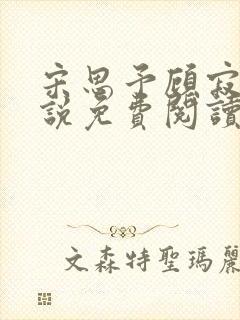 宋思予顧寂
說免費閱讀
文森特聖瑪麗